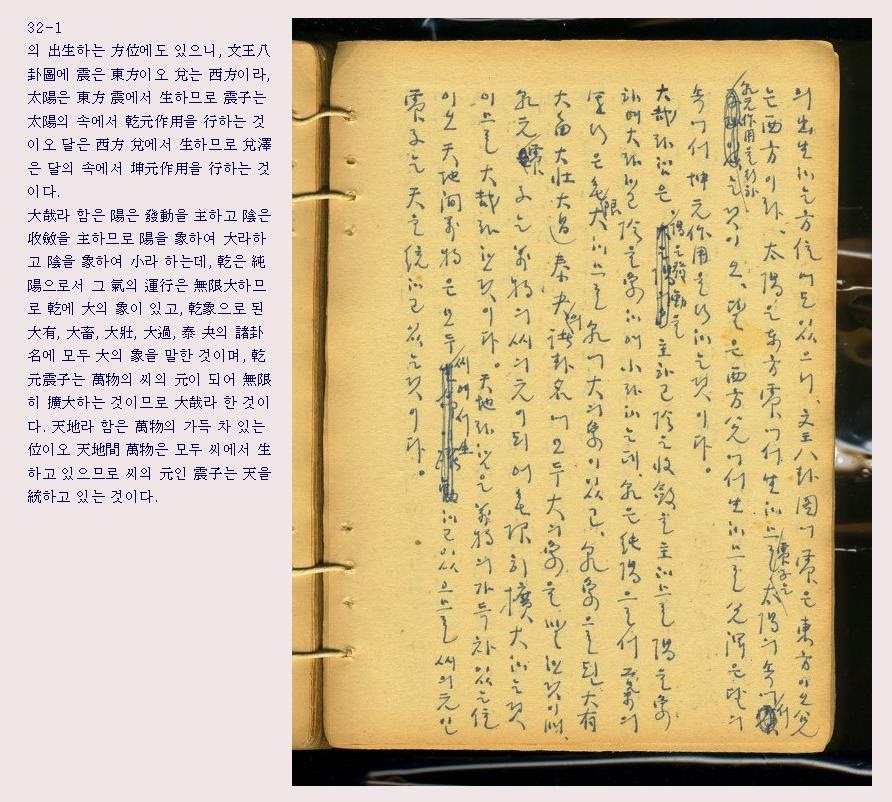 32-1
의 出生하는 方位에도 있으니, 文王八
卦圖에 震은 東方이오 兌는 西方이라,
太陽은 東方 震에서 生하므로 震子는
太陽의 속에서 乾元作用을 行하는 것
이오 달은 西方 兌에서 生하므로 兌澤
은 달의 속에서 坤元作用을 行하는 것
이다.
大哉라 함은 陽은 發動을 主하고 陰은
收斂을 主하므로 陽을 象하여 大라하
고 陰을 象하여 小라 하는데, 乾은 純
陽으로서 그 氣의 運行은 無限大하므
로 乾에 大의 象이 있고, 乾象으로 된
大有, 大畜, 大壯, 大過, 泰 夬의 諸卦
名에 모두 大의 象을 말한 것이며, 乾
元震子는 萬物의 씨의 元이 되어 無限
히 擴大하는 것이므로 大哉라 한 것이
다. 天地라 함은 萬物의 가득 차 있는
位이오 天地間 萬物은 모두 씨에서 生
하고 있으므로 씨의 元인 震子는 天을
統하고 있는 것이다.
의 出生하는 方位에도 있으니, 文王八卦圖에 震은 東方이오 兌
는 西方이라, 太陽은 东方 震에서 生하므로 震子는 太陽의 속에서
乾元作用을 行하는 것이오, 달은 西方 兌에서 生하므로 兌澤은 달의
속에서 坤元作用을 行하는 것이다.
大哉라 함은 陽은 發動을 主하고 陰은 收斂을 主하므로 陽을 象
하여 大라하고 陰을 象하여 小라 하는데, 乾은 純陽으로서 氣의
運行은 無限大하므로 乾에 大의 象이 있고, 乾象으로 된 大有
大畜 大壯 大過 泰 夬의 諸卦名에 모두 大의 象을 말한 것이며,
乾元 震子는 萬物의 씨의 元이 되어 無限히 擴大하는 것
이므로 大哉라 한 것이다. 天地라 함은 萬物의 가득 차 있는 位
이오 天地間 萬物은 모두 씨에서 生하고 있으므로 씨의 元인
震子는 天을 統하고 있는 것이다.